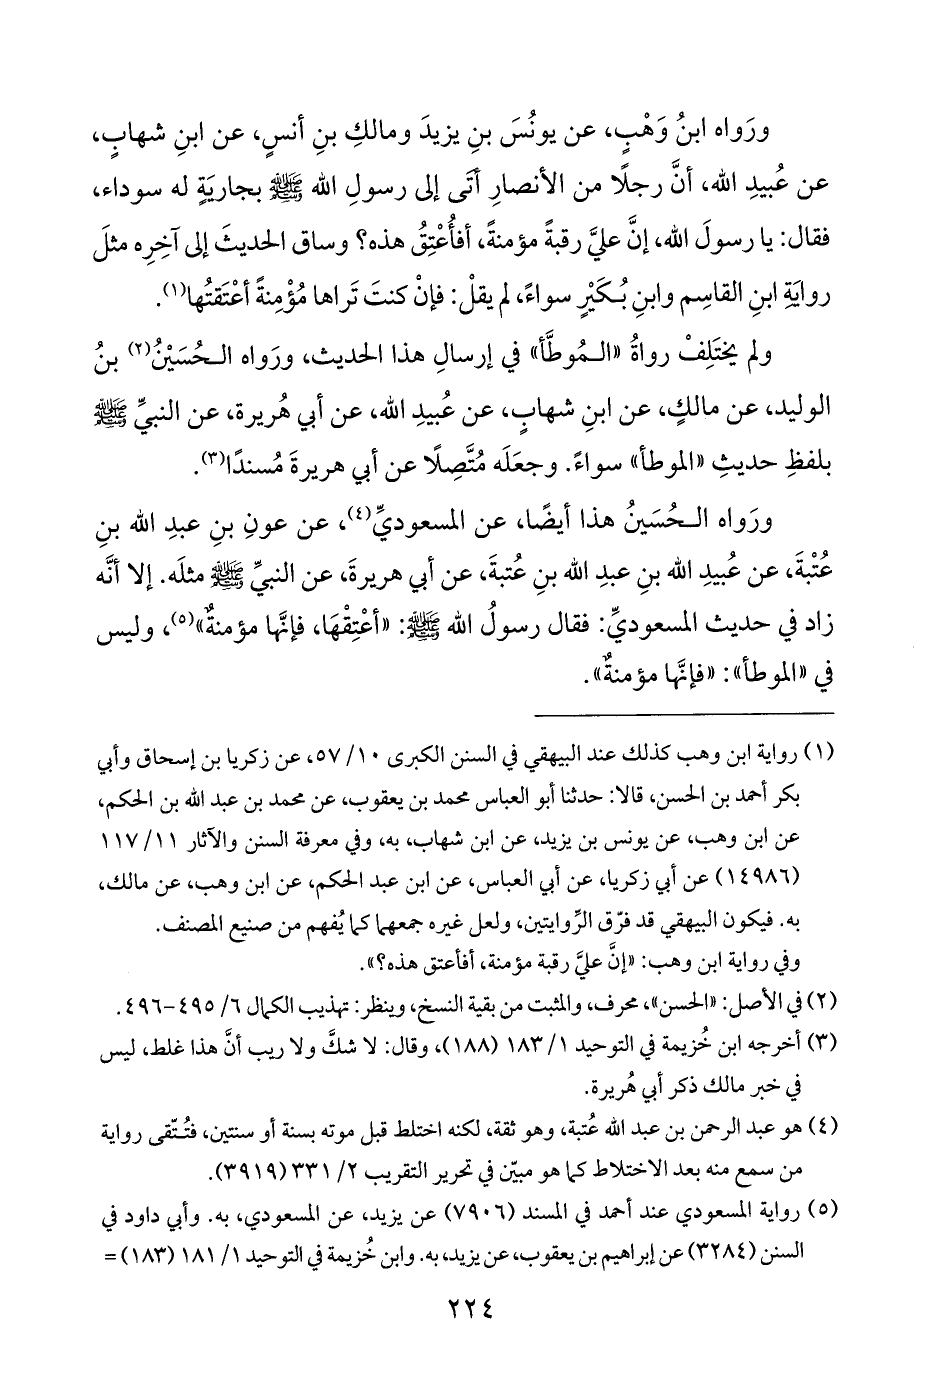 ورَواه ابنُ وَهْبٍ، عن يونُسَ بنِ يزيدَ ومالكِ بنِ أنسٍ، عن ابنِ شهابٍ،
عن عُبيدِ الله، أنَّ رجلًا من الأنصارِ أتَى إلى رسولِ الله ﷺ بجاريَةٍ له سوداء،
فقال: يا رسولَ الله، إنَّ عليَّ رقبةً مؤمنةً، أفأُعْتِقُ هذه؟ وساق الحديثَ إلى آخِرِه مثلَ
روايَةِ ابنِ القاسِم وابنِ بُكَيْرٍ سواءً، لم يقلْ: فإنْ كنتَ تَراها مُؤْمِنةً أعْتَقتُها(١).
ولم يختَلِفْ رواةُ «الـمُوطَّأ» في إرسالِ هذا الحديث، ورَواه الـحُسَيْنُ(٢) بنُ
الوليد، عن مالكٍ، عن ابنِ شهابٍ، عن عُبيدِ الله، عن أبي هُريرة، عن النبيِّ ﷺ
بلفظِ حديثِ «الموطأ» سواءً. وجعَلَه مُتَّصِلًا عن أبي هريرةَ مُسندًا(٣).
ورَواه الـحُسَينُ هذا أيضًا، عن المسعوديِّ(٤)، عن عونِ بنِ عبدِ الله بنِ
عُتْبةَ، عن عُبيدِ الله بنِ عبدِ الله بنِ عُتبةَ، عن أبي هريرةَ، عن النبيِّ ﷺ مثلَه. إلا أنَّه
زاد في حديث المسعوديِّ: فقال رسولُ الله ﷺ: «أعْتِقْهَا، فإنَّها مؤمنةٌ»(٥)، وليس
في «الموطأ»: «فإنَّها مؤمنةٌ».
(١) رواية ابن وهب كذلك عند البيهقي في السنن الكبرى ١٠/ ٥٧، عن زكريا بن إسحاق وأبي
بكر أحمد بن الحسن، قالا: حدثنا أبو العباس محمد بن يعقوب، عن محمد بن عبد الله بن الحكم،
عن ابن وهب، عن يونس بن يزيد، عن ابن شهاب، به، وفي معرفة السنن والآثار ١١/ ١١٧
(١٤٩٨٦) عن أبي زكريا، عن أبي العباس، عن ابن عبد الحكم، عن ابن وهب، عن مالك،
به. فيكون البيهقي قد فرّق الرِّوايتين، ولعل غيره جمعهما كما يُفهم من صنيع المصنف.
وفي رواية ابن وهب: «إنَّ عليَّ رقبة مؤمنة، أفأعتق هذه؟».
(٢) في الأصل: «الحسن»، محرف، والمثبت من بقية النسخ، وينظر: تهذيب الكمال ٦/ ٤٩٥-٤٩٦.
(٣) أخرجه ابن خُزيمة في التوحيد ١/ ١٨٣ (١٨٨)، وقال: لا شكَّ ولا ريب أنَّ هذا غلط، ليس
في خبر مالك ذكر أبي هُريرة.
(٤) هو عبد الرحمن بن عبد الله عُتبة، وهو ثقة، لكنه اختلط قبل موته بسنة أو سنتين، فتُـتّقى رواية
من سمع منه بعد الاختلاط كما هو مبيّن في تحرير التقريب ٢/ ٣٣١ (٣٩١٩).
(٥) رواية المسعودي عند أحمد في المسند (٧٩٠٦) عن يزيد، عن المسعودي، به. وأبي داود في
السنن (٣٢٨٤) عن إبراهيم بن يعقوب، عن يزيد، به. وابن خُزيمة في التوحيد ١/ ١٨١ (١٨٣) =
٢٢٤